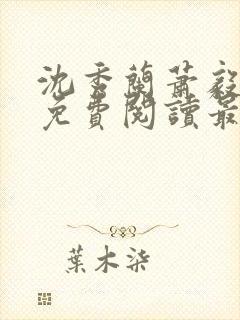 沈香蘭蕭毅
免費閱讀最
葉木柒